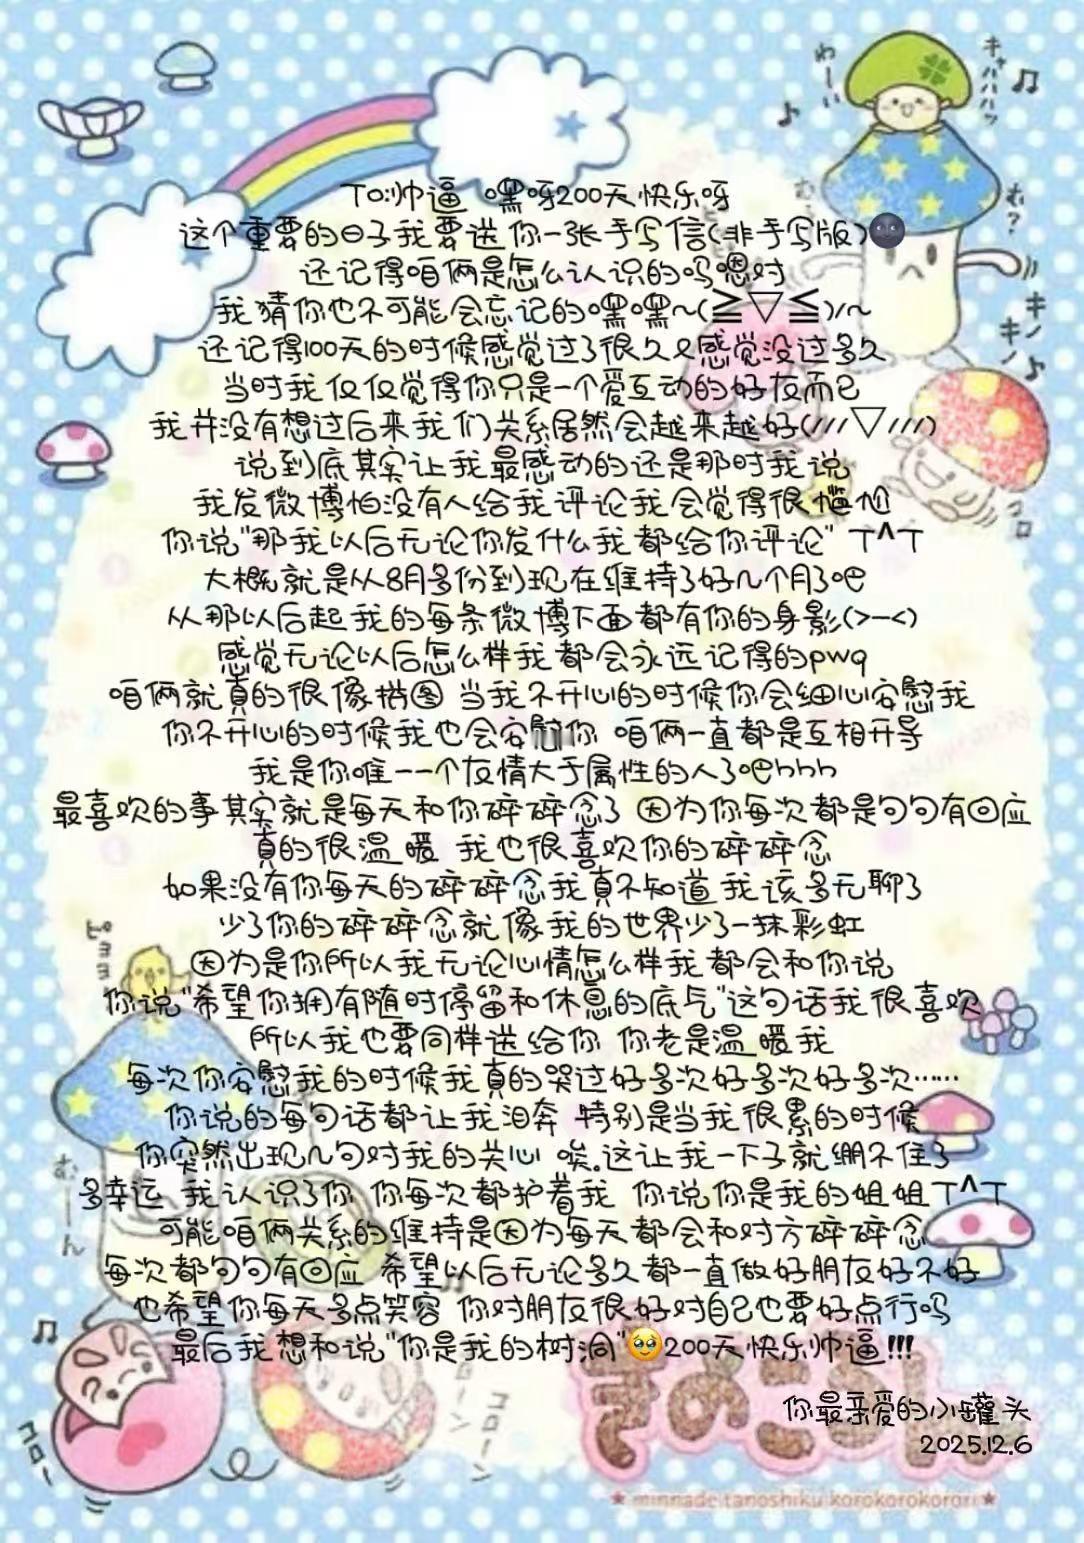 TO:帅逼 嘿呀200天快乐呀
这个重要的日子我要送你一张手写信(非手写版)🌚
还记得咱俩是怎么认识的吗嗯对
我猜你也不可能会忘记的嘿嘿~(≧▽≦)/~
还记得100天的时候感觉过了很久又感觉没过多久
当时我仅仅觉得你只是一个爱互动的好友而已
我并没有想过后来我们关系居然会越来越好(///▽///)
说到底其实让我最感动的还是那时我说
我发微博怕没有人给我评论我会觉得很尴尬
你说"那我以后无论你发什么我都给你评论" T^T
大概就是从8月多份到现在维持了好几个月了吧
从那以后起我的每条微博下面都有你的身影(>-<)
感觉无论以后怎么样我都会永远记得的pwq
咱俩就真的很像捎图 当我不开心的时候你会细心安慰我
你不开心的时候我也会安慰你 咱俩一直都是互相开导
我是你唯一一个友情大于属性的人了吧hhh
最喜欢的事其实就是每天和你碎碎念了 因为你每次都是句句有回应
真的很温暖 我也很喜欢你的碎碎念
如果没有你每天的碎碎念我真不知道我该多无聊了
少了你的碎碎念就像我的世界少了一抹彩虹
因为是你所以我无论心情怎么样我都会和你说
你说"希望你拥有随时停留和休息的底气"这句话我很喜欢
所以我也要同样送给你 你老是温暖我
每次你安慰我的时候我真的哭过好多次好多次好多次……
你说的每句话都让我泪奔 特别是当我很累的时候
你突然出现几句对我的关心 唉。这让我一下子就绷不住了
多幸运 我认识了你 你每次都护着我 你说你是我的姐姐T^T
可能咱俩关系的维持是因为每天都会和对方碎碎念
每次都句句有回应 希望以后无论多久都一直做好朋友好不好
也希望你每天多点笑容 你对朋友很好对自己也要好点行吗
最后我想和说"你是我的树洞"🥹200天快乐帅逼!!!
你最亲爱的小罐头
2025.12.6
わーい
キャハハハッ
む?
む?
キノキノ
コロ
ピヨヨヨ
むーん
コロー
コローン
コローン
きのころりん
★ minnade tanoshiku korokorokorori ★